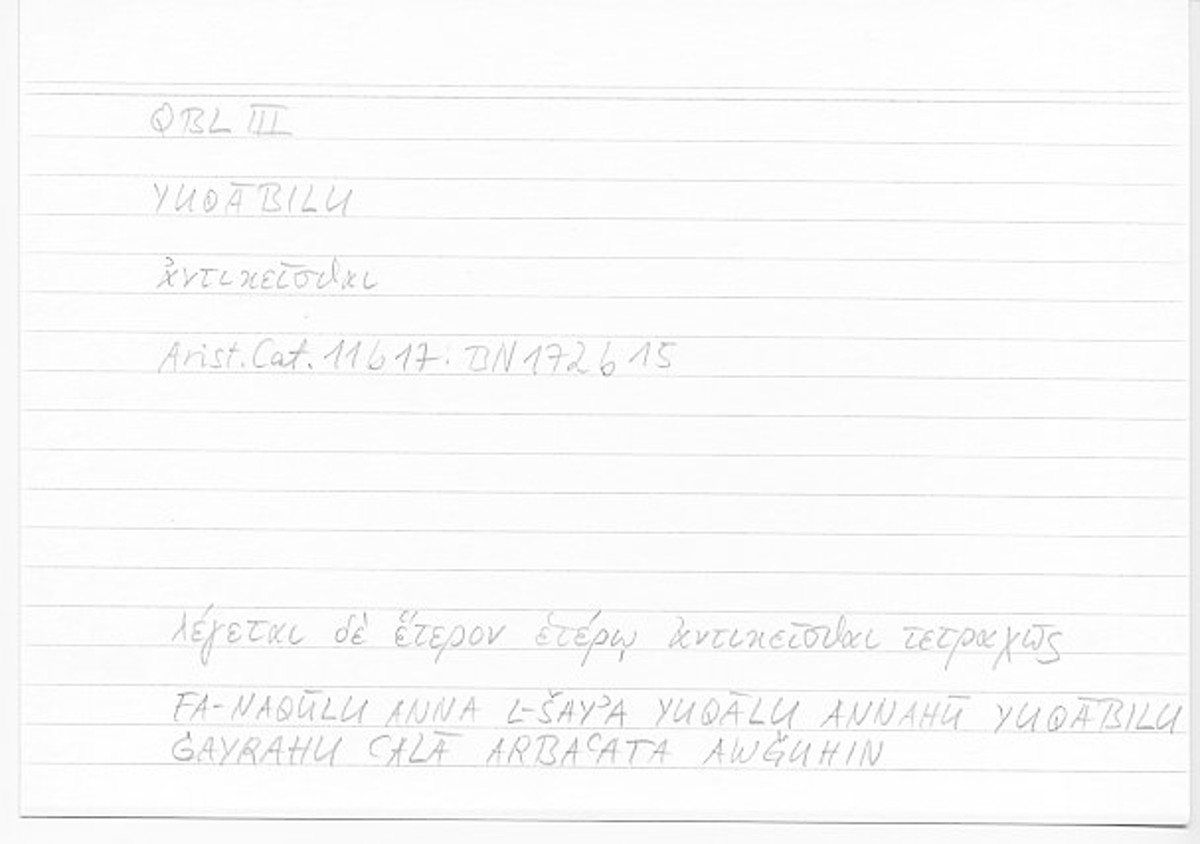 QBL III
YUQĀBILU
ἀντικεῖσθαι
Arist. Cat. 11 b 17 : BN 172 b 15
λέγεται δὲ ἕτερον ἑτέρῳ ἀντικεῖσθαι τετραχῶς
FA-NAQŪLU ANNA L-ŠAYʾA YUQĀLU ANNAHŪ YUQĀBILU
ĠAYRAHU ʿALĀ ARBAʿATA AWǦUHIN